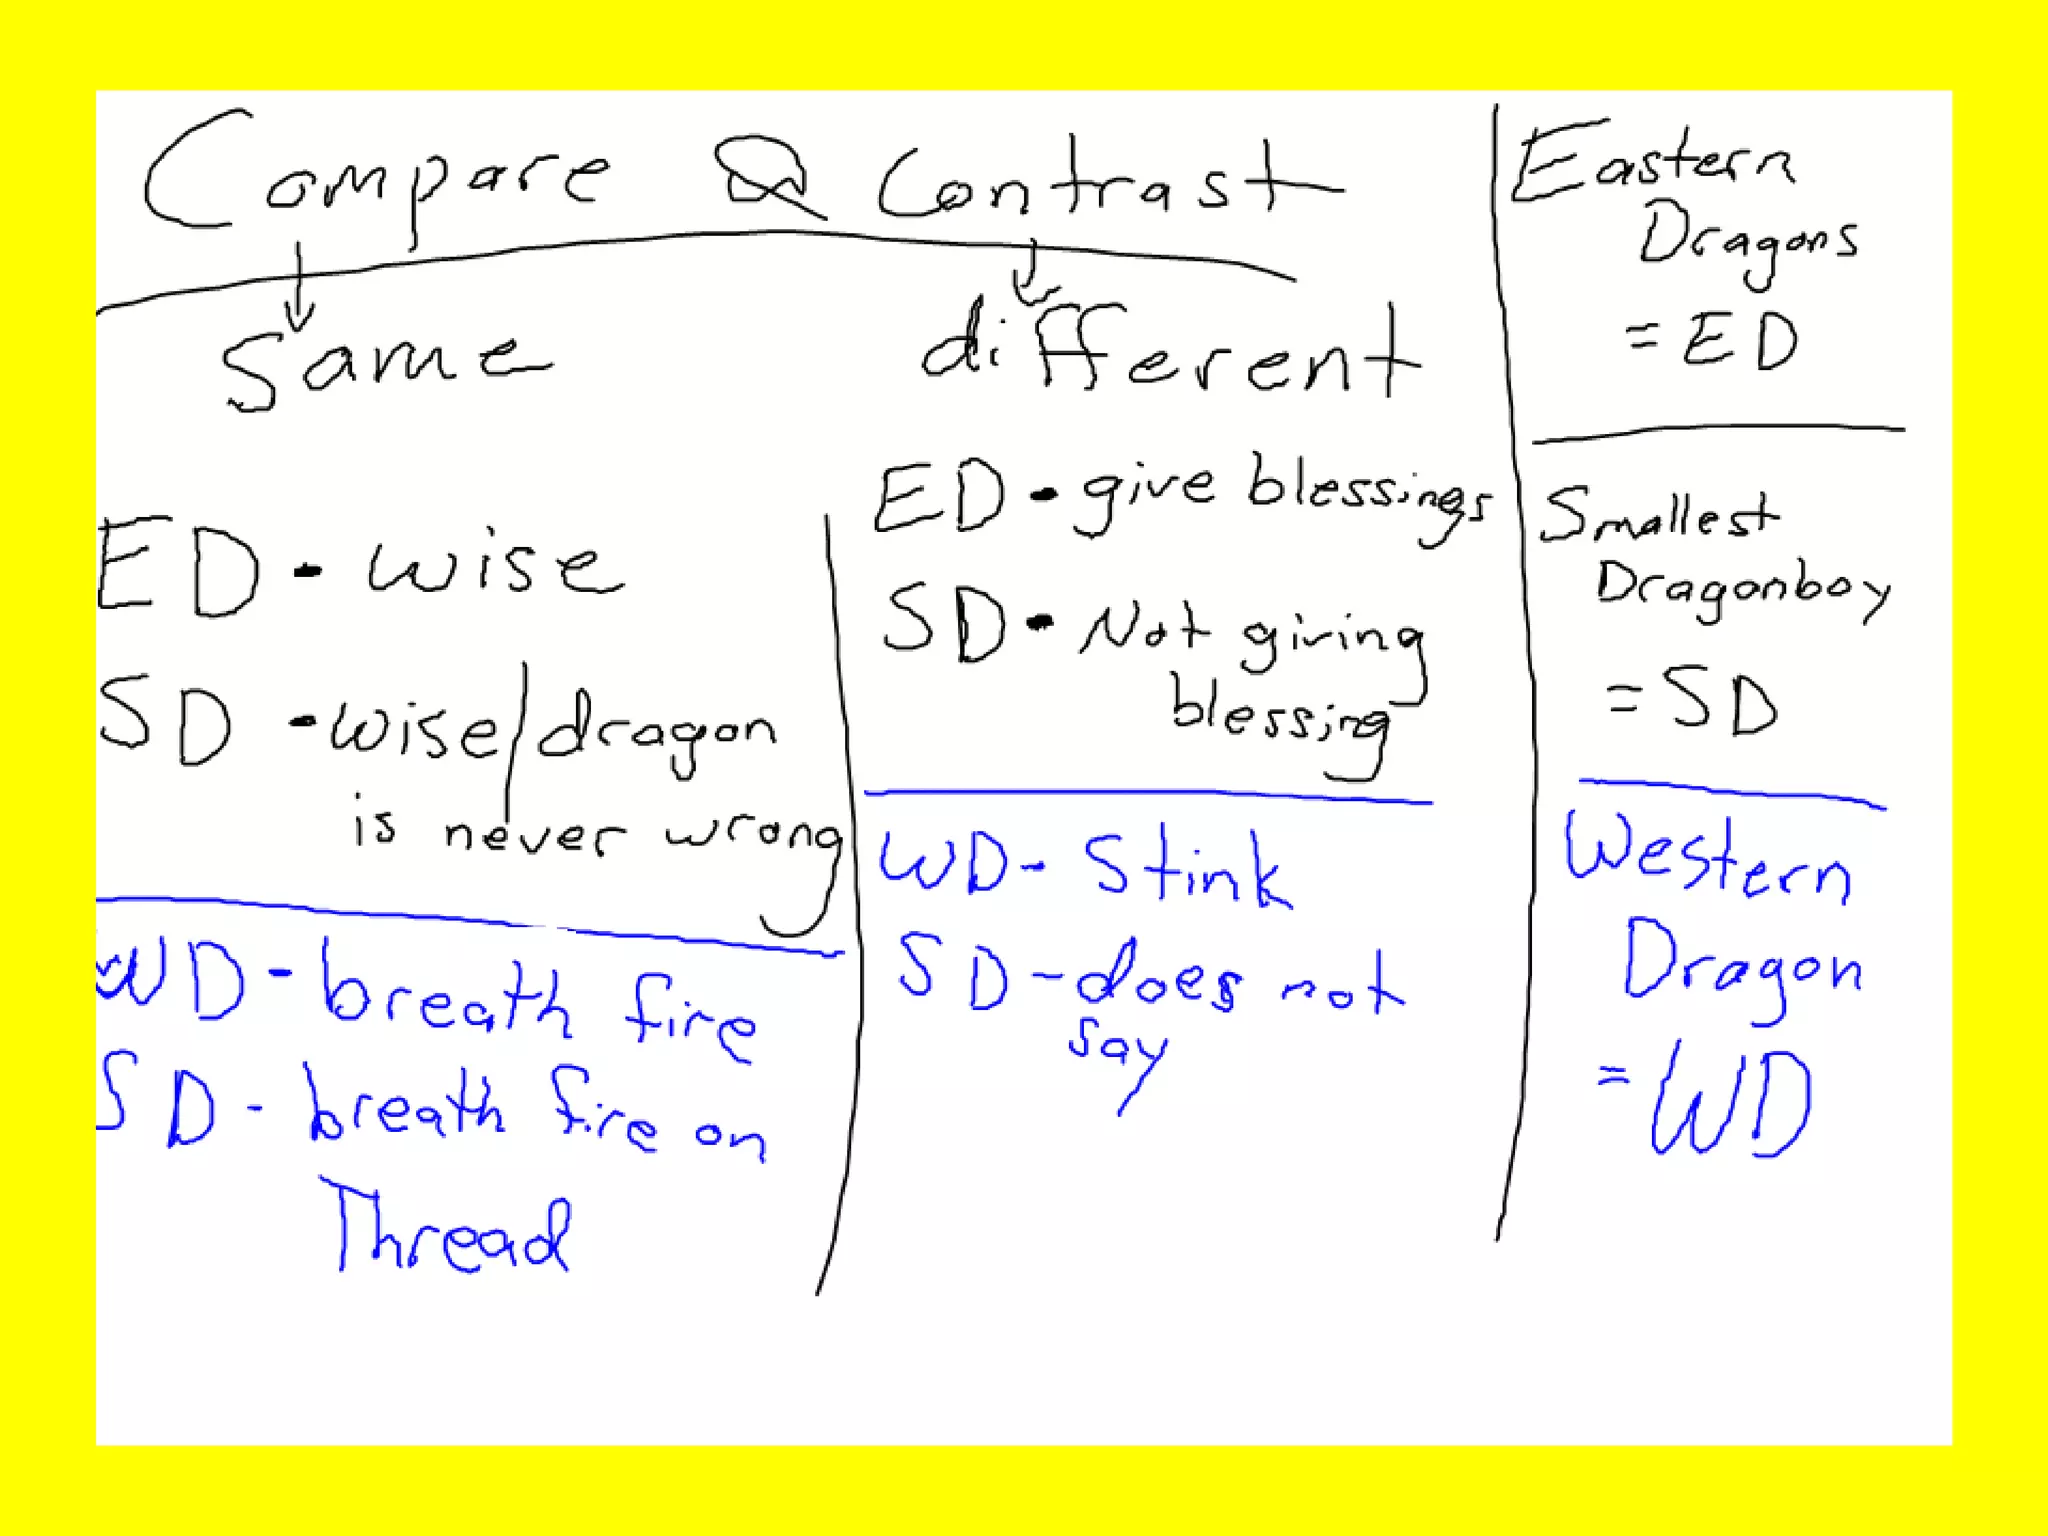 Compare & Contrast
Same
different
ED - wise
SD - wise/dragon
is never wrong
WD - breath fire
SD - breath fire on
Thread
ED - give blessings
SD - Not giving
blessing
WD - Stink
SD - does not
say
Eastern
Dragons
= ED
Smallest
Dragonboy
= SD
Western
Dragon
= WD